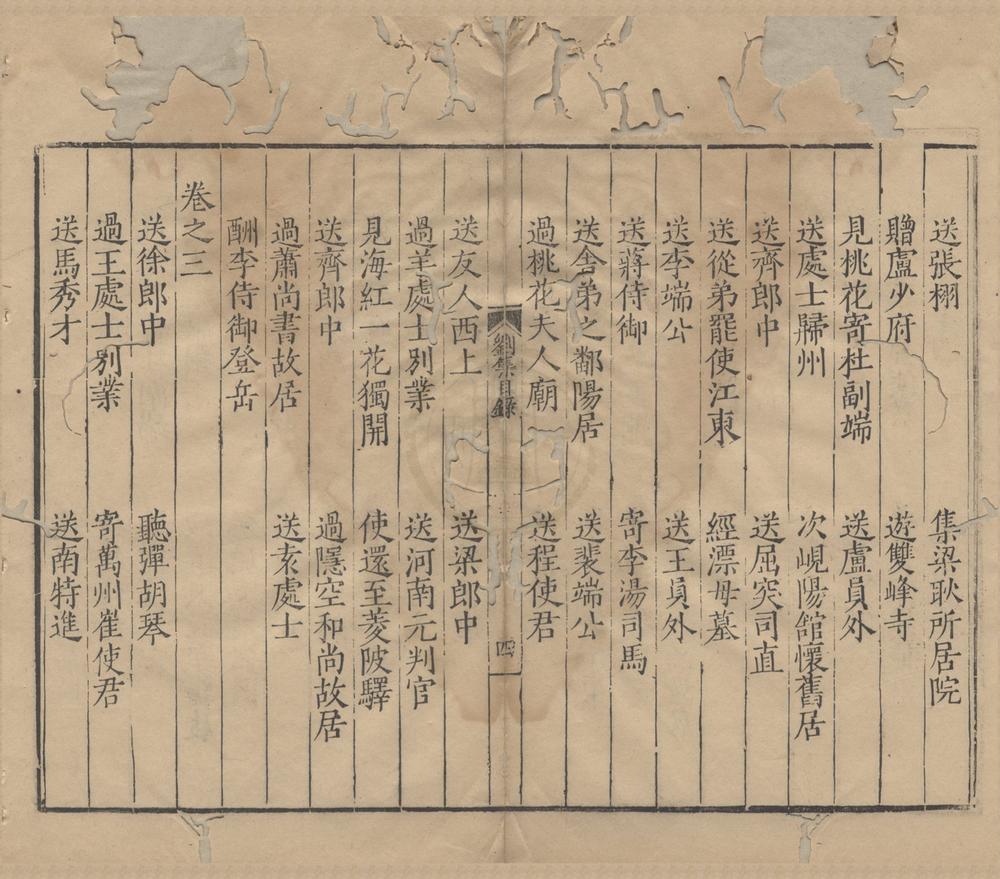 送張栩 集梁耿所居院
贈盧少府 遊雙峰寺
見桃花寄杜副端 送盧員外
送處士歸州 次峴陽館懷舊居
送齊郎中 送屈突司直
送從弟罷使江東 經漂母墓
送李端公 送王員外
送蔣侍御 寄李湯司馬
送舍弟之鄱陽居 送裴端公
過桃花夫人廟 送程使君
劉集目錄 四
送友人西上 送梁郎中
過羊處士別業 送河南元判官
見海紅一花獨開 使還至菱陂驛
送齊郎中 過隱空和尚故居
過蕭尚書故居 送袁處士
酬李侍御登岳
卷之三
送徐郎中 聽彈胡琴
過王處士別業 寄萬州崔使君
送馬秀才 送南特進